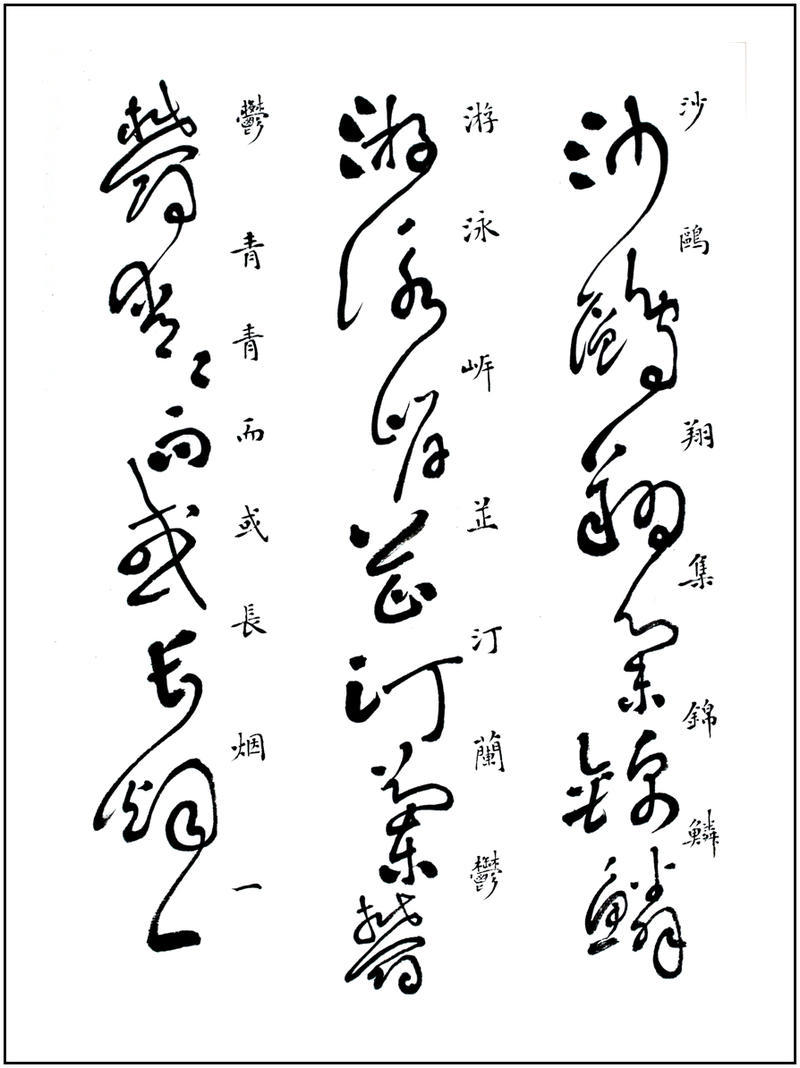 沙鷗翔集錦鱗
沙鷗翔集錦鱗
游泳岸芷汀蘭鬱
游泳岸芷汀蘭鬱
鬱青青而或長烟一
鬱青〻而或長烟一